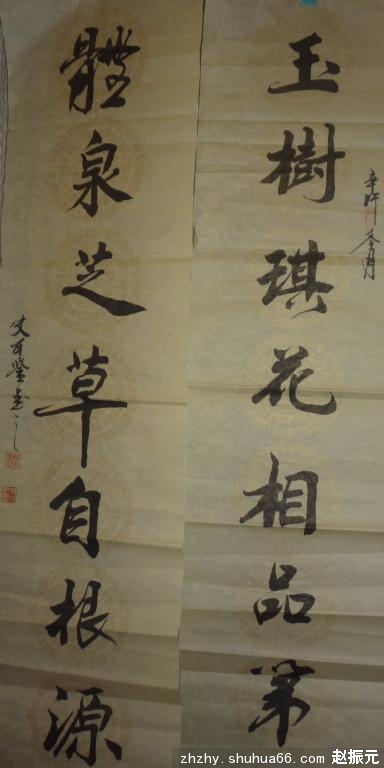 玉樹琪花相品第
辛卯冬月
體泉芝草自根源
zhzhy.shuhua66.com/ 赵振元